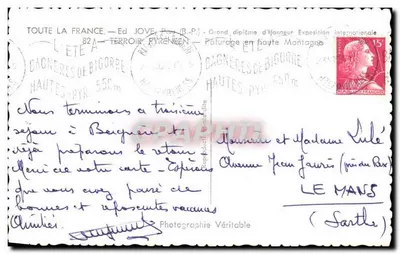 TOUTE LA FRANCE. — Ed JOVE, Pau (B.-P.) - Grand diplôme d'Honneur Exposition Internationale
821 — TERROIR PYRENEEN — Pâturage en Haute Montagne
L'ÉTÉ A
BAGNÈRES DE BIGORRE
HAUTES-PYR. 550m
L'ÉTÉ A
BAGNÈRES DE BIGORRE
HAUTES-PYR. 550m
15F
Nous terminons ce troisième
séjour à Bagnères et
déjà préparons le retour.
Merci de votre carte - Espérons
que vous avez passé de
bonnes et reposantes vacances
Amitiés
Monsieur et Madame Lulé
Avenue Jean Jaurès
LE MANS
(Sarthe)
Photographie Véritable